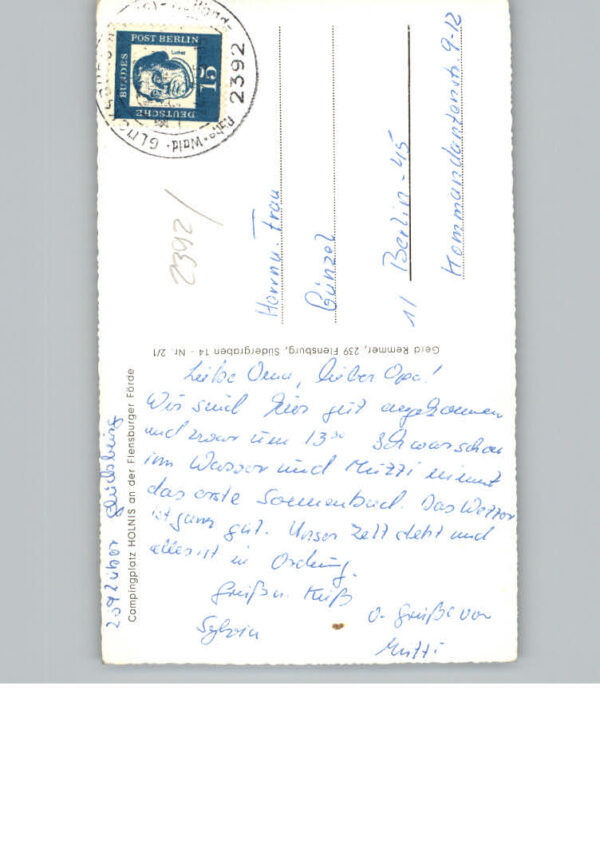 Liebe Oma, lieber Opa!
Wir sind hier gut angekommen
und zwar um 13³⁰
im Wasser und Mutti nimmt
das erste Sonnenbad. Das Wetter
ist ganz gut. Unser Zelt steht und
alles ist in Ordnung.
Gruß u. Kuß
Sylvia
u. Grüße von
Mutti
2392 über Glücksburg
Campingplatz HOLNIS an der Flensburger Förde
Gerd Remmer, 239 Flensburg, Südergraben 14 - Nr. 2/1
Herrn u. Frau
Günzel
1/ Berlin-45
Kommandantenstr. 9-12
2392/
DEUTSCHE
BUNDES
POST BERLIN
15
Luther
2392